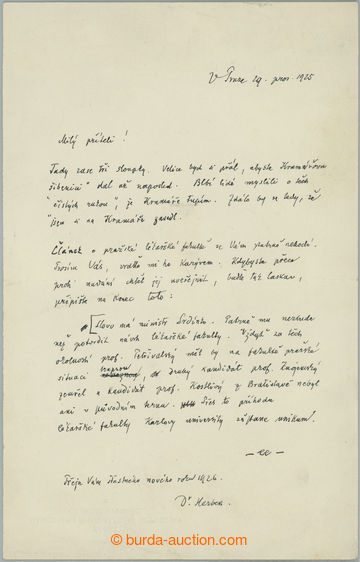 V Praze 29. pros. 1925
Milý příteli!
Tady zase tři sloupky. Velice bych si přál, abyste Kramářovu
šibenici" dal až naposled. Blbí lidé mysleli o těch
"čistých rukou", že Kramáře tupím. Zdálo by se tedy, že
jsem si na Kramáře zasedl.
Článek o pražské lékařské fakultě se Vám patrně nehodí.
Prosím Vás, vraťte mi ho
proti nadání chtěl jej uveřejnit, buďte tak laskav,
připište na konec toto:
Slovo má ministr Srdínko. Patrně mu nezbude
než potvrdit návrh lékařské fakulty. Vždyť za těch
okolností prof. Petřivalský měl by na fakultě pražské
situaci druhý kandidát prof.
zemřel a kandidát prof. Kostlivý z Bratislavy nebyl
ani v původním ternu. Sic to příhoda
lékařské fakulty Karlovy university zůstane unikum.
— cc —
Přeju Vám šťastného nového roku 1926.
Dr. Herben.
burda-auction.com